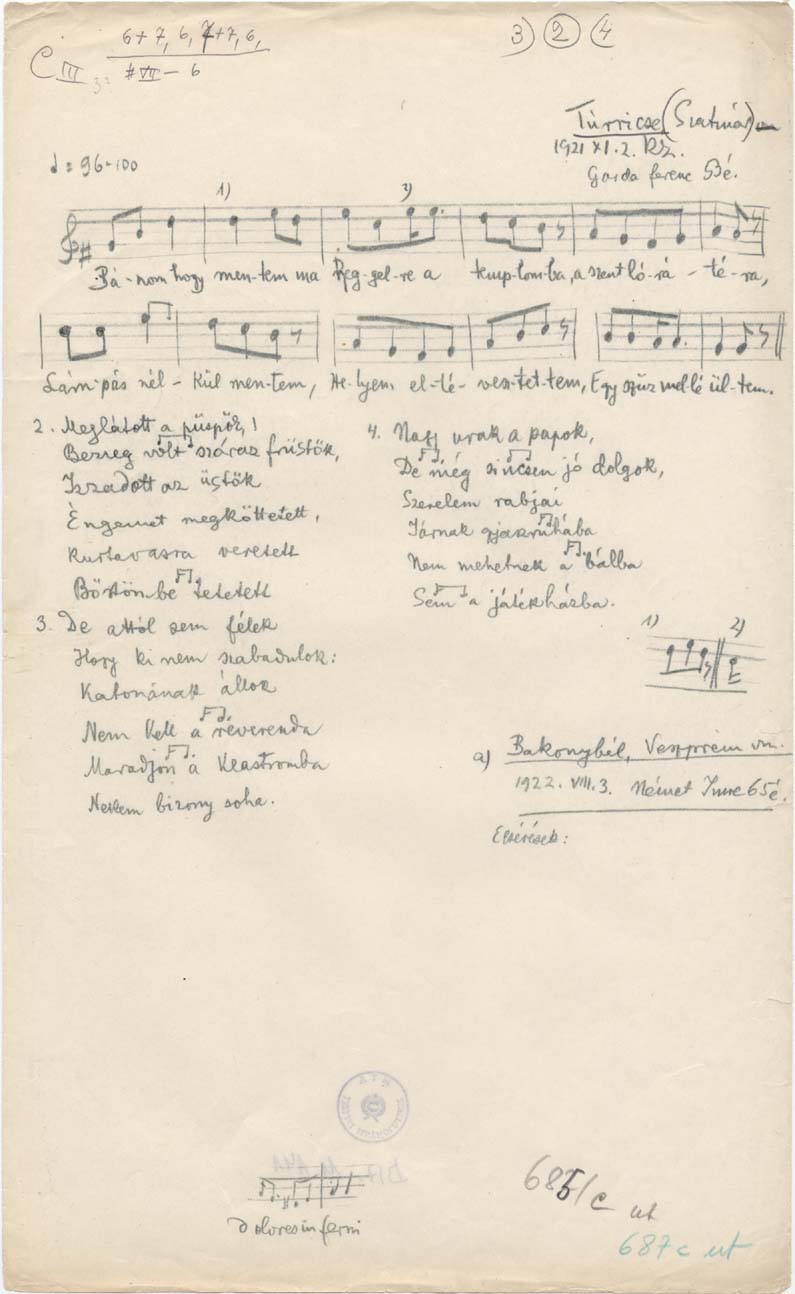 6+7, 6, 7+7, 6,
C III #VII – 6
3) 2 (4
Túrricse (Szatmár)
1921 XI. 2.
Garda ferenc
♩ = 96-100
1) 3)
Bá-nom hogy men-tem ma Reg-gel-re a temp-lom-ba, a szent ló-rá-té-ra,
Lám-pás nél-kül men-tem, He-lyem el-té-vesz-tet-tem, Egy szűz mellé ül-tem.
2. Meglátott a püspök,
Bezzeg vólt száraz früstök,
Izzadott az üstök
Èngemet megköttetett,
Kurtavasra veretett
Börtönbe tetetett
3. De attól sem félek
Hogy ki nem szabadulok:
Katonának állok
Nem kell a réverenda
Maradjon a klastromba
Nekem bizony soha.
4. Nagy urak a papok,
De még sincsen jó dolgok,
Szerelem rabjai
Járnak gyászruhába
Nem mehetnek a bálba
Sem a játékházba.
1) 2)
a) Bakonybél, Veszprém vm.
1922. VIII. 3. Német Imre 65é.
Eltérések:
dolores inferni
685/c ut
687 c ut